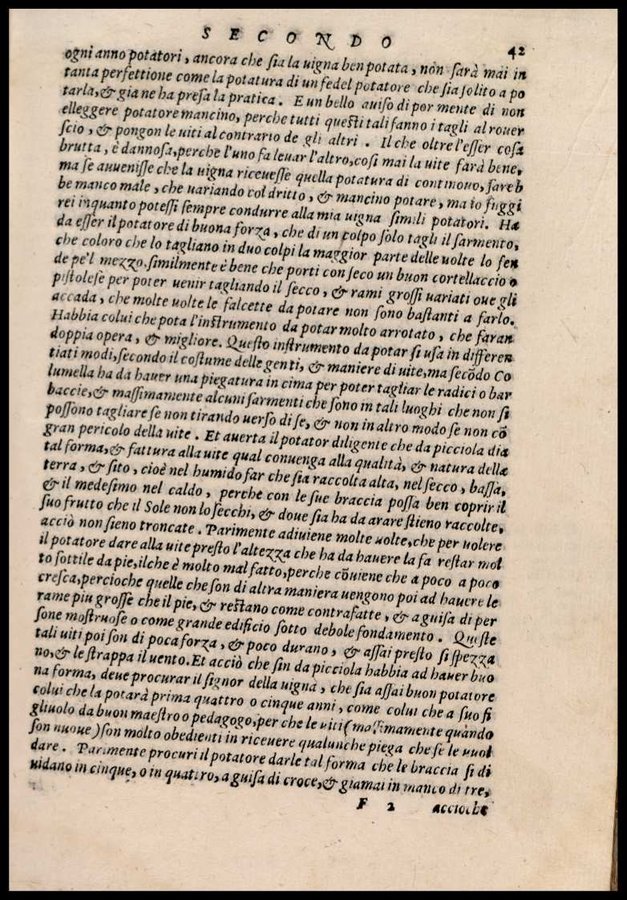 SECONDO 42
ogni anno potatori, ancora che sia la uigna ben potata, non sarà mai in
tanta perfettione come la potatura di un fedel potatore che sia solito a po
tarla, & gia ne ha presa la pratica. E un bello auiso di por mente di non
elleggere potatore mancino, perche tutti questi tali fanno i tagli al rouer
scio, & pongon le uiti al contrario de gli altri. Il che oltre l'esser cosa
brutta, è dannosa, perche l'uno fa leuar l'altro, cosi mai la uite farà bene,
ma se auuenisse che la uigna riceuesse quella potatura di continouo, fareb
be manco male, che uariando col dritto, & mancino potare, ma io fuggi
rei inquanto potessi sempre condurre alla mia uigna simili potatori. Ha
da esser il potatore di buona forza, che di un colpo solo tagli il sarmento,
che coloro che lo tagliano in duo colpi la maggior parte delle uolte lo fen
de pe'l mezzo, similmente è bene che porti con seco un buon cortellaccio o
pistolese per poter uenir tagliando il secco, & rami grossi uariati oue gli
accada, che molte uolte le falcette da potare non sono bastanti a farlo.
Habbia colui che pota l'instrumento da potar molto arrotato, che faran
doppia opera, & migliore. Questo instrumento da potar si usa in differen
tiati modi, secondo il costume delle genti, & maniere di uite, ma secõdo Co
lumella ha da hauer una piegatura in cima per poter tagliar le radici o bar
baccie, & massimamente alcuni sarmenti che sono in tali luoghi che non si
possono tagliare se non tirando uerso di se, & non in altro modo se non cõ
gran pericolo della uite. Et auerta il potator diligente che da picciola dia
tal forma, & fattura alla uite qual conuenga alla qualità, & natura della
terra, & sito, cioè nel humido far che sia raccolta alta, nel secco, bassa,
& il medesimo nel caldo, perche con le sue braccia possa ben coprir il
suo frutto che il Sole non lo secchi, & doue sia ha da arare stieno raccolte,
acciò non sieno troncate. Parimente adiuiene molte uolte, che per uolere
il potatore dare alla uite presto l'altezza che ha da hauere la fa restar mol
to sottile da pie, ilche è molto mal fatto, perche cõuiene che a poco a poco
cresca, percioche quelle che son di altra maniera uengono poi ad hauere le
rame piu grosse che il pie, & restano come contrafatte, & a guisa di per
sone mostruose o come grande edificio sotto debole fondamento. Queste
tali uiti poi son di poca forza, & poco durano, & assai presto si spezza
no, & le strappa il uento. Et acciò che sin da picciola habbia ad hauer buo
na forma, deue procurar il signor della uigna, che sia assai buon potatore
colui che la potarà prima quattro o cinque anni, come colui che a suo fi
gliuolo da buon maestro o pedagogo, per che le uiti (massimamente quando
son nuoue) son molto obedienti in riceuere qualunche piega che se le uuol
dare. Parimente procuri il potatore darle tal forma che le braccia si di
uidano in cinque, o in quattro, a guisa di croce, & giamai in manco di tre,
F 2 accioche